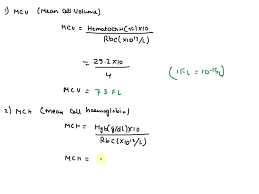 1) MCV (Mean Cell Volume)
MCV = Hematocrit(%)×10
Rbc(×10¹²/L)
= 29.2×10
4
MCV = 73 FL
(1FL = 10⁻¹⁵L)
2) MCH (Mean Cell haemoglobin)
MCH = Hgb(g/dL)×10
Rbc(×10¹²/L)
MCH =